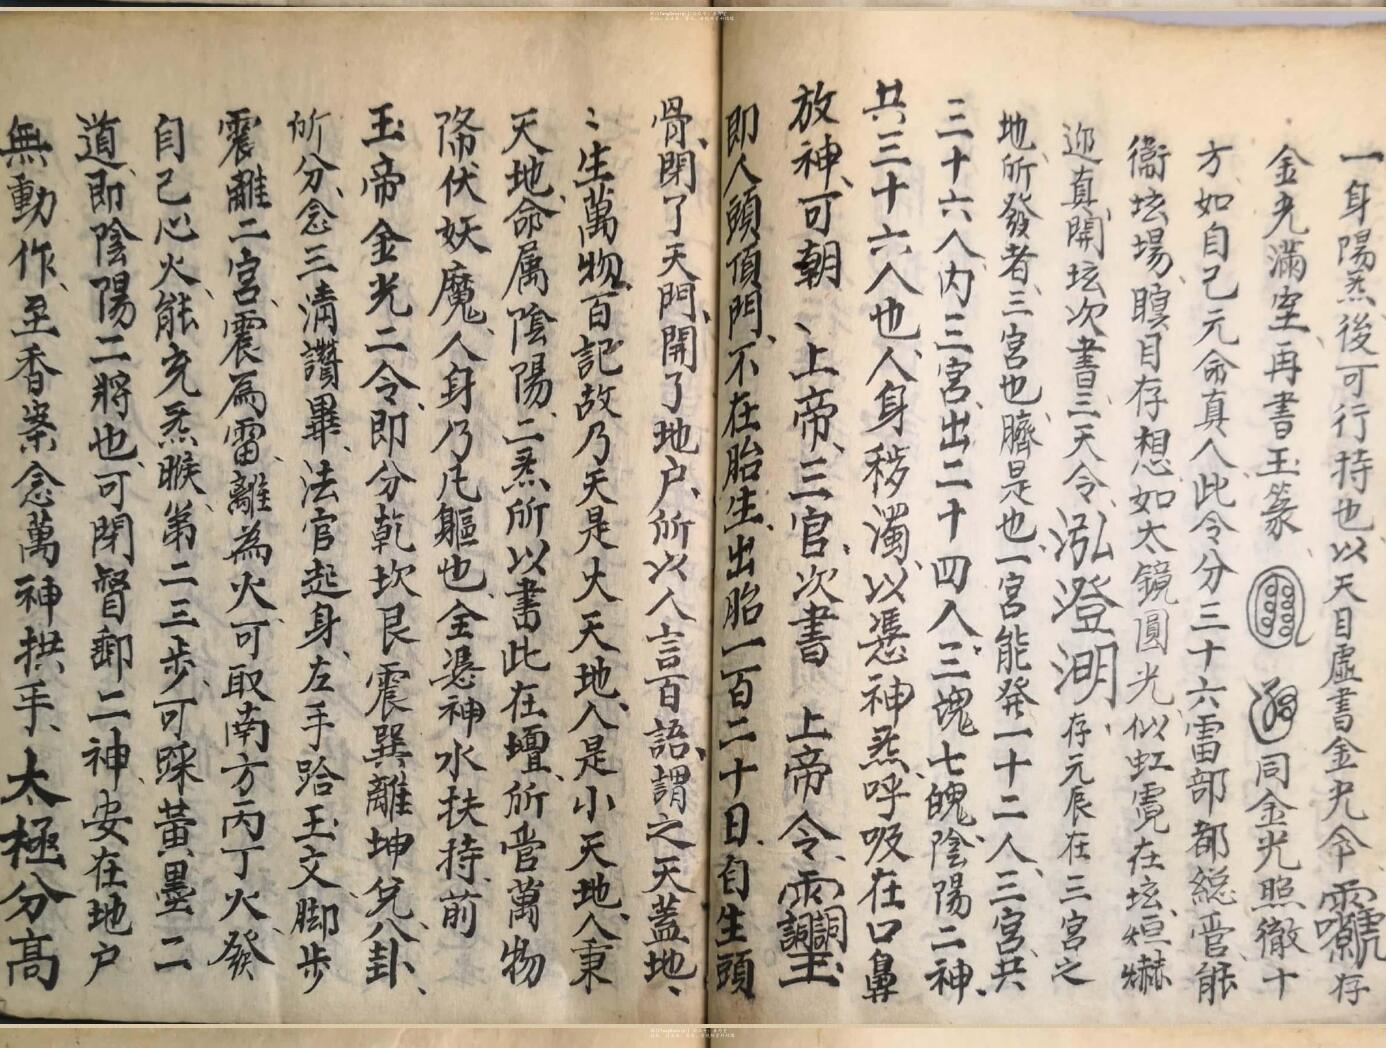 一身陽炁後可行持也以天目虛書金光令存
金光滿室再書玉篆同金光照徹十
方如自己元命真人此令分三十六雷部都総管能
衛坛場、瞑目存想如太鏡圓光似虹霓在坛垣爀
迎真開坛次書三天令泓澄淜存元辰在三宮之
地所發者三宮也臍是也一宮能發一十二人三宮共
三十六人内三宮出二十四人三魂七魄陰陽二神、
共三十六人也人身穢濁以憑神炁呼吸在口鼻
放神可朝、上帝三官次書上帝令
即人頭頂門不在胎生出胎一百二十日自生頭
骨閉了天門開了地户所以人言百語謂之天蓋地、
〻生萬物百記故乃天是大天地人是小天地人秉
天地命属陰陽二炁所以書此在壇所管萬物
降伏妖魔人身乃凡軀也全憑神水扶持前
玉帝金光二令即分乾坎艮震巽離坤兌八卦、
所分念三清讚畢法官起身左手跲玉文脚步
震離二宮震為雷離為火可取南方丙丁火發
自己心火能充炁睺第二三步可踩黃墨二
道即陰陽二將也可閉督郵二神安在地户
無動作至香案念萬神拱手、太極分高